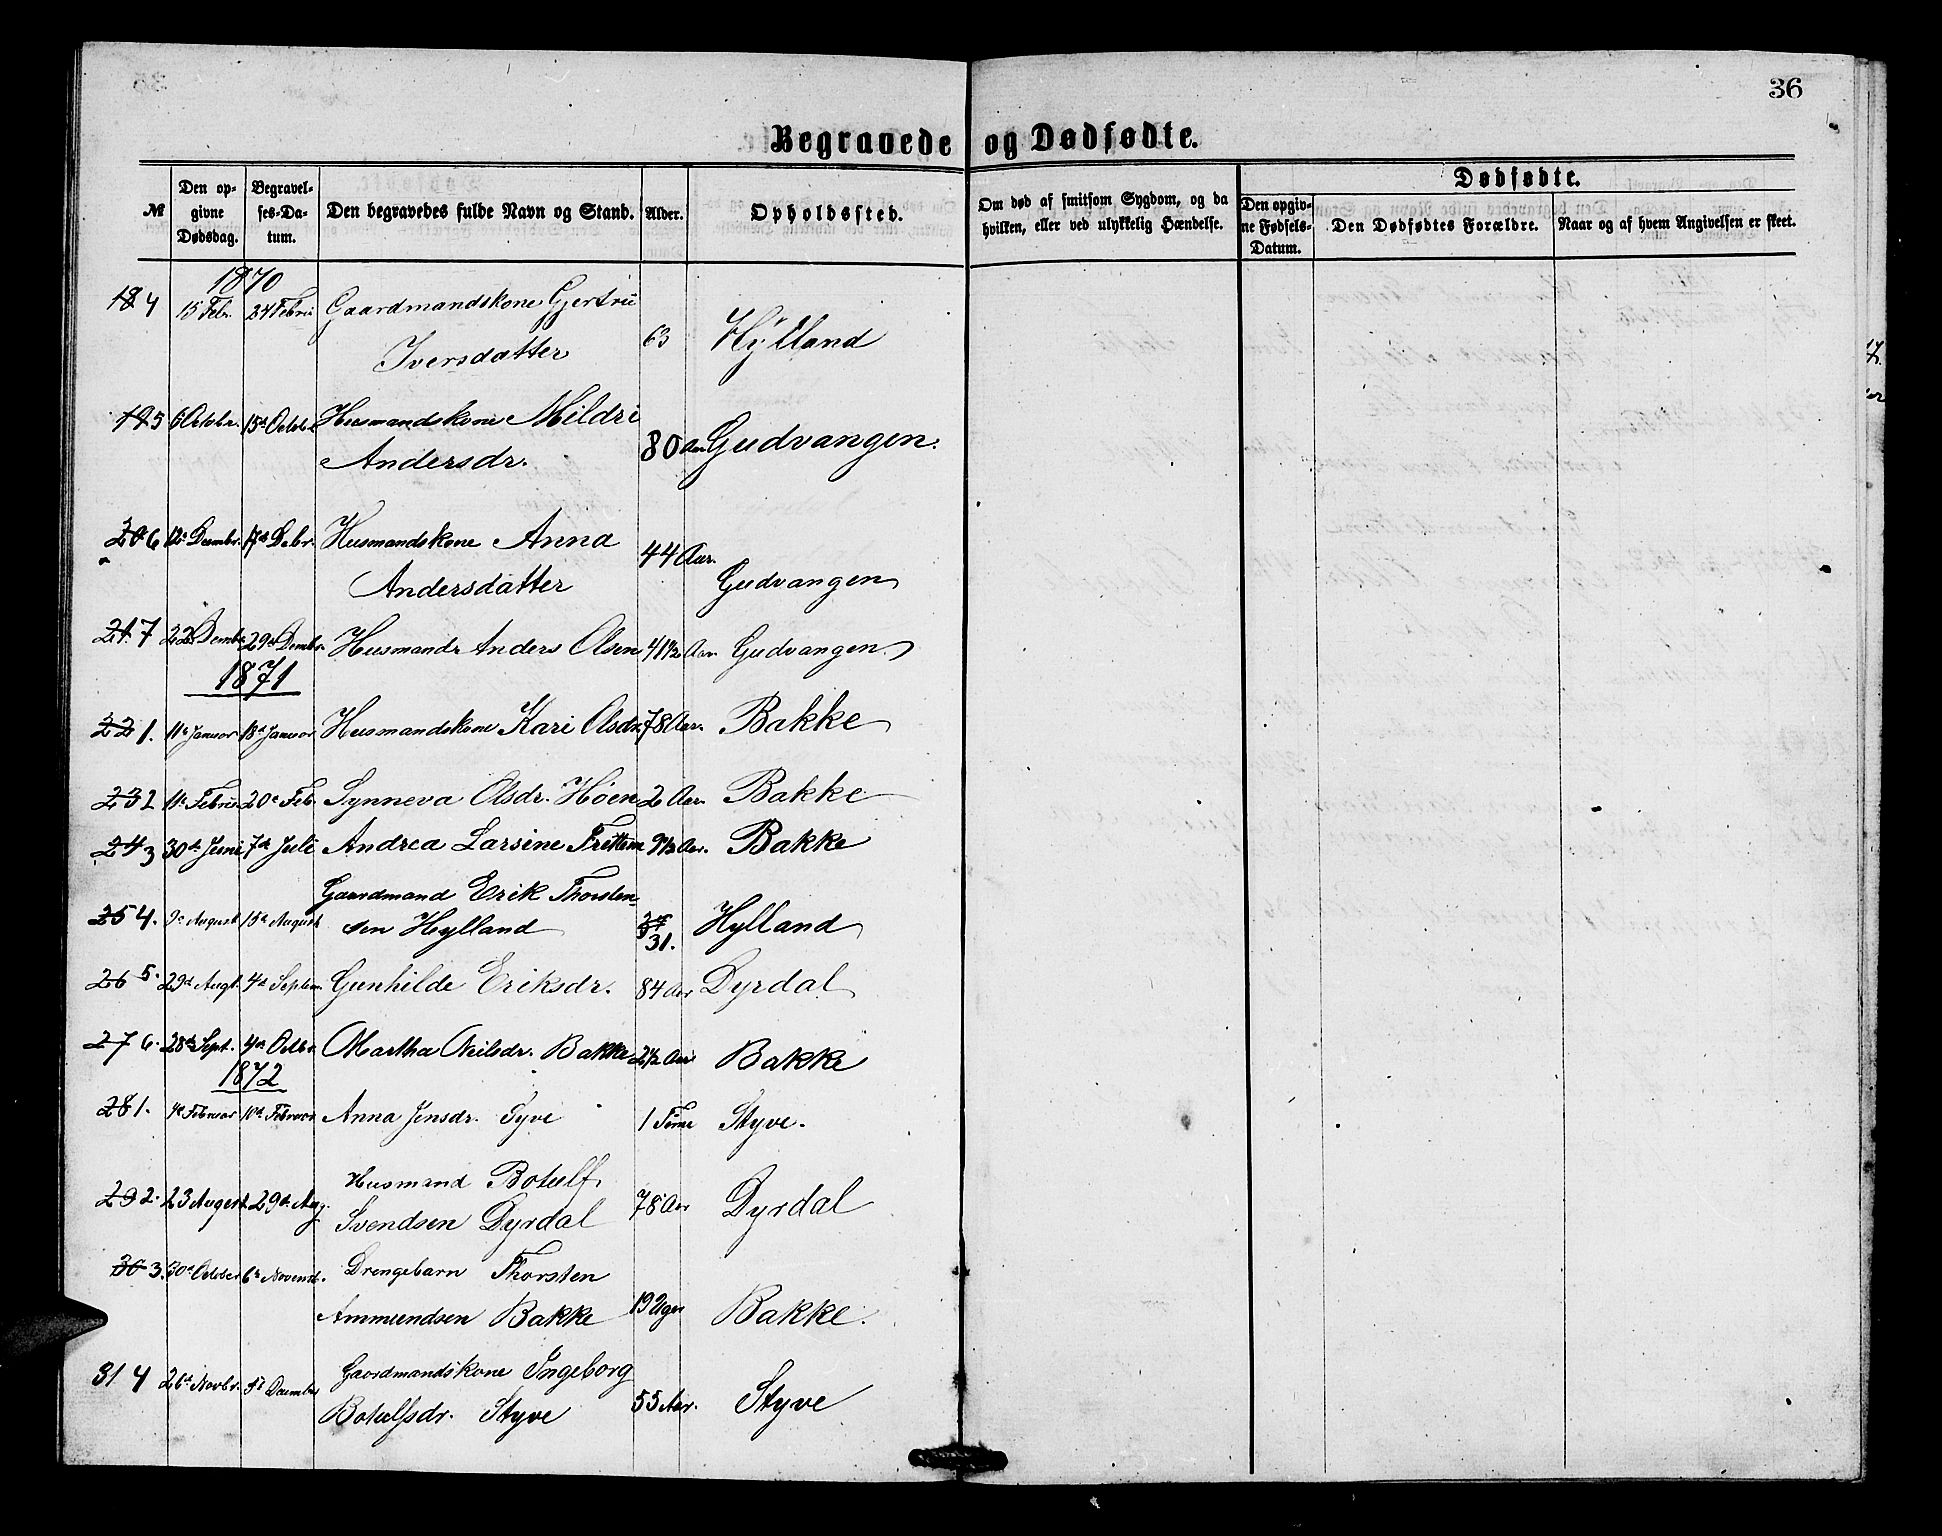 36
Begravede og Dødfødte.
№ Den opgivne Dødsdag. Begravelses-Datum. Den begravedes fulde Navn og Stand. Alder. Opholdssted. Om død af smitsom Sygdom, og da hvilken, eller ved ulykkelig Hændelse. Dødfødte. Den opgivne Fødsels-Datum. Den Dødfødtes Forældre. Naar og af hvem Angivelsen er skeet.
1870
18 4 15 Febr. 24 Febru Gaardmandskone Gjertru
Iversdatter 63 Hylland
19 5 6 Octobr. 15de Octobr Husmandskone Mildri
Andersdr. 80 Aar Gudvangen.
20 6 12te Decembr. 17de Debr. Husmandskone Anna
Andersdatter 44 Aar. Gudvangen
21. 7 22 Dcembr. 29de Dcembr. Husmand Anders Olsen 41½ Aar Gudvangen.
1871
22 1. 11te Januar 18de Januar Husmandskone Kari Olsdr. 78 Aar. Bakke
23 2 11te Febru 20de Feb. Synneva Olsdr. Høen 2 Aar. Bakke
24 3 30de Juni 7de Juli Andrea Larsine Aar. Bakke
25 4. 9de August 15de August Gaardmand Erik Thorsten-
sen Hylland 31. Hylland
26 5. 29de Augt. 4de Septem. Gunhilde Eriksdr. 84 Aar Dyrdal
27 6. 28de Sept. 4de Octbr. Martha Neilsdr. Bakke 2½ Aar Bakke
1872
28 1. 4de Februar 10de Februar Anna Jensdr. Tyve 1 Time Styve.
29 2. 23 August 29de Aug. Husmand Botulf
Svendsen Dyrdal 78 Aar Dyrdal
30 3. 30te October 6te Novemb. Drengebarn Thorsten
Ammundsen Bakke 19 Uger Bakke.
31 4 26de Novbr. 5te Decembr Gaardmandskone Ingeborg
Botulfsdr. Styve 55 Aar. Styve